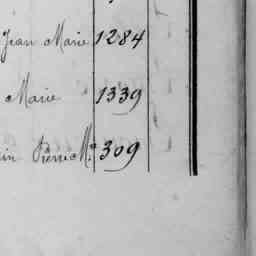 Jean Marie 1284
Marie 1339
in Pierre M. 309